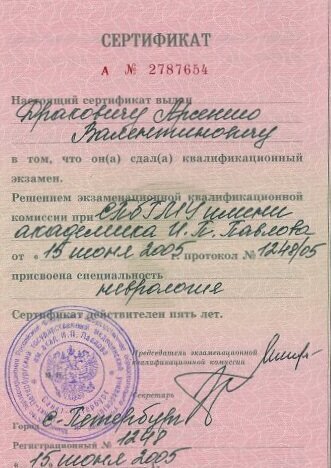 СЕРТИФИКАТ
А № 2787654
Настоящий сертификат выдан
Драковичу Арсению
Валентиновичу
в том, что он(а) сдал(а) квалификационный
экзамен.
Решением экзаменационной квалификационной
комиссии при СПбГМУ имени
академика И.П. Павлова
от « 15 июня 2005 г. протокол № 1248/05
присвоена специальность
неврология
Сертификат действителен пять лет.
Председатель экзаменационной
квалификационной комиссии
Секретарь
Город С-Петербург
Регистрационный № 1248
« 15 июня 2005